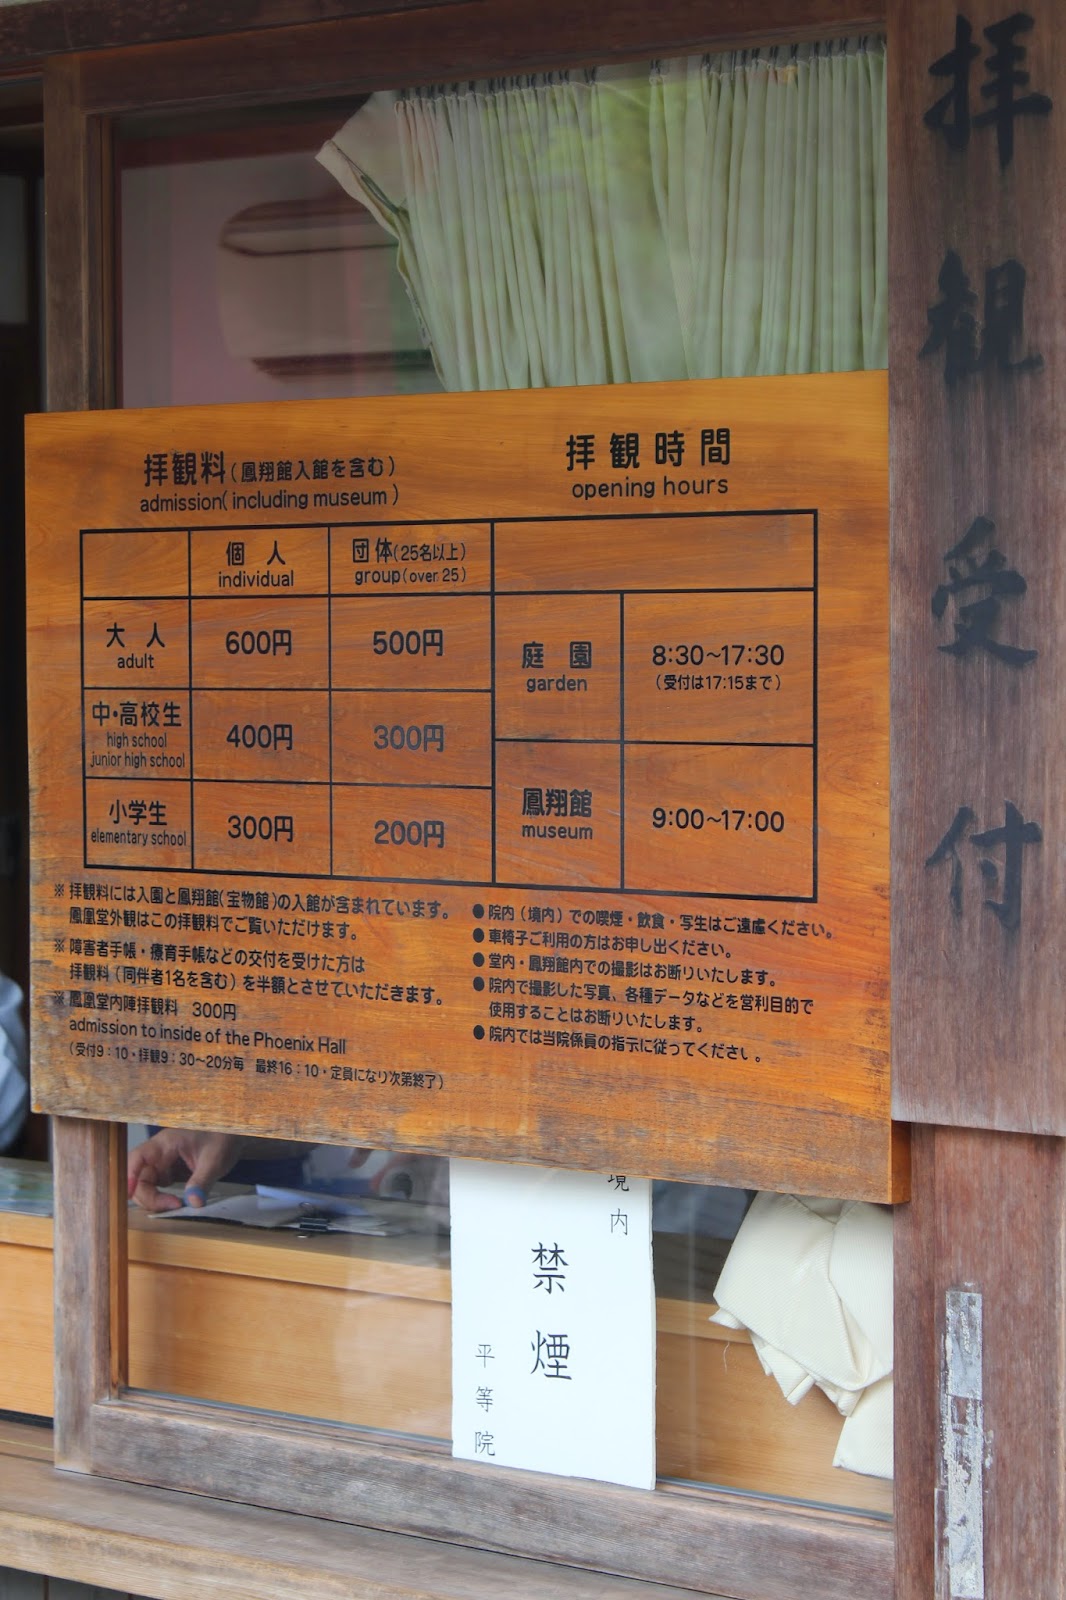 拝観受付
拝観料(鳳翔館入館を含む)
admission(including museum)
拝観時間
opening hours
個人
individual
団体(25名以上)
group(over 25)
大人
adult
600円
500円
中・高校生
high school
junior high school
400円
300円
小学生
elementary school
300円
200円
庭園
garden
8:30〜17:30
(受付は17:15まで)
鳳翔館
museum
9:00〜17:00
※拝観料には入園と鳳翔館(宝物館)の入館が含まれています。
鳳凰堂外観はこの拝観料でご覧いただけます。
※障害者手帳・療育手帳などの交付を受けた方は
拝観料(同伴者1名を含む)を半額とさせていただきます。
※鳳凰堂内陣拝観料 300円
admission to inside of the Phoenix Hall
(受付9:10・拝観9:30〜20分毎 最終16:10・定員になり次第終了)
●院内(境内)での喫煙・飲食・写生はご遠慮ください。
●車椅子ご利用の方はお申し出ください。
●堂内・鳳翔館内での撮影はお断りいたします。
●院内で撮影した写真、各種データなどを営利目的で
使用することはお断りいたします。
●院内では当院係員の指示に従ってください。
境内
禁煙
平等院